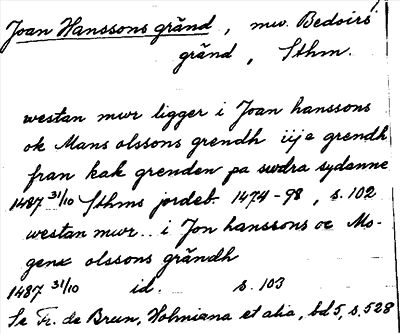 Joan Hanssons gränd, nuv. Bedoirs
gränd, Sthm.
westan mwr ligger i Joan hanssons
ok Mans olssons grendh iija grendh
fran kak grenden pa swdra sydanne
1487 31/10 Sthms jordeb. 1474-98, s. 102
westan mwr... i Jon hanssons oc Mo-
gens olssons grändh
1487 31/10 id. s. 103
Se Fr. de Brun, Holmiana et alia, bd 5, s. 528